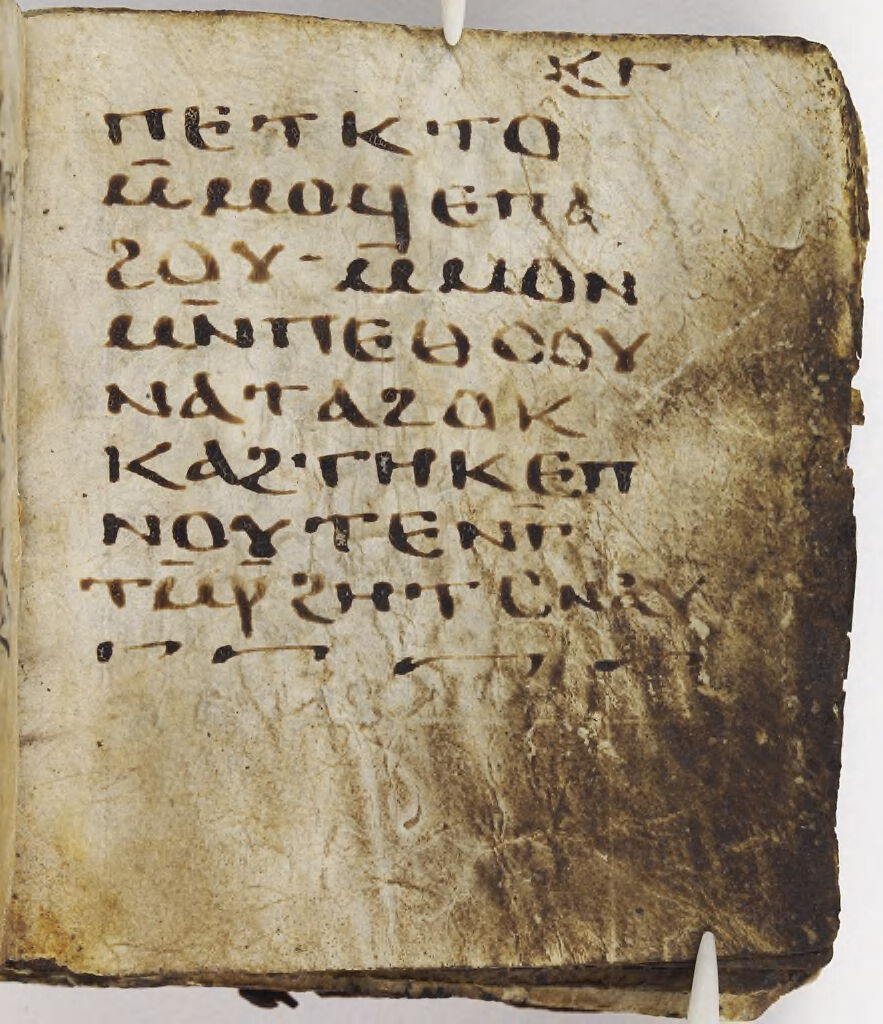 ⲕ︤ⲅ
ⲡⲉⲧⲕⲧⲟ
ⲙ̄ⲙⲟϥⲉⲡⲁ
ϩⲟⲩ· ⲙ̄ⲙⲟⲛ
ⲙⲛ̄ⲡⲉⲑⲟⲟⲩ
ⲛⲁⲧⲁϩⲟⲕ
ⲕⲁϩⲧⲏⲕⲉⲡ
ⲛⲟⲩⲧⲉⲛⲅ̄
ⲧⲙ̄ⲣ̄ϩⲏⲧⲥⲛⲁⲩ